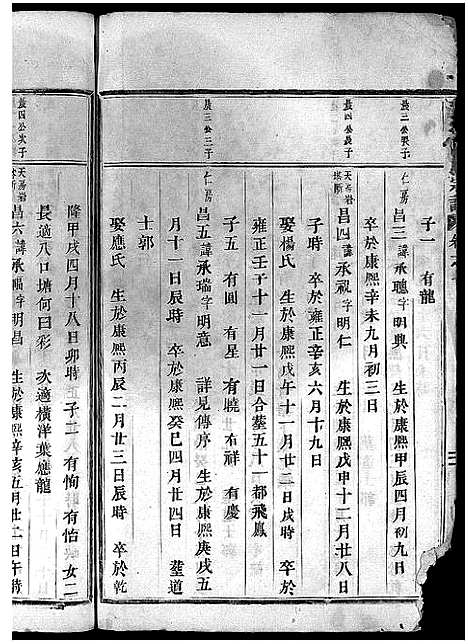 子一　有龍
晨三公長子
仁房
昌三諱承聰字明興　生於康熙甲辰四月初九日
卒於康熙辛未九月初三日
晨四公長子
天馬岩
昌四諱承視字明仁　生於康熙戊申十二月廿八日
子時　卒於雍正辛亥六月十九日
娶楊氏　生於康熙戊午十一月廿二日戌時　卒於
雍正壬子十一月廿一日合葬五十一都飛鳳
子五　有圓　有星　有曉　有祥　有慶
晨三公三子
仁房
昌五諱承瑞字明意　詳見傳序　生於康熙庚戌五
月十一日辰時　卒於康熙癸巳四月廿四日　葬道
士郭
娶應氏　生於康熙丙辰二月廿三日辰時　卒於乾
隆甲戌四月十八日卯時　子二　有恂　有怡　女二
長適八口塘何日彩　次適橫洋葉應龍
晨四公次子
天馬岩
昌六諱承瑞字明昌　生於康熙辛亥五月廿二日午時